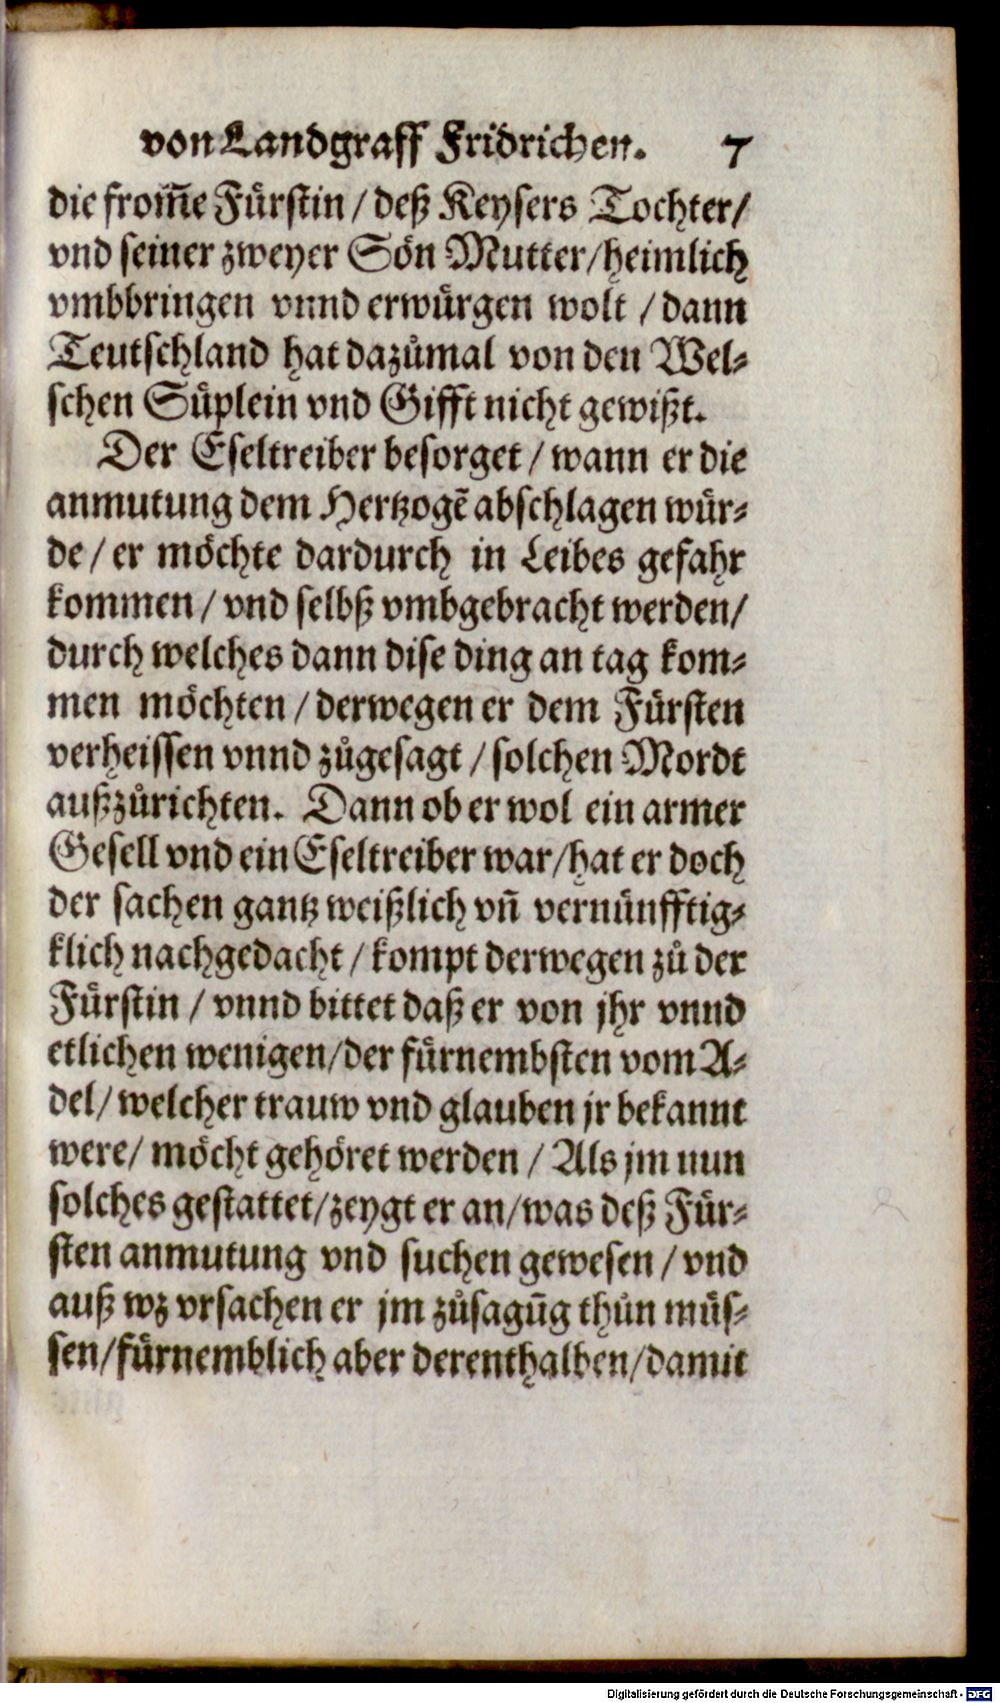 von Landgraff Fridrichen. 7
die from̃e Fürstin / deß Keysers Tochter/
vnd seiner zweyer Sön Mutter/heimlich
vmbbringen vnnd erwürgen wolt / dann
Teutschland hat dazůmal von den Wel⸗
schen Süplein vnd Gifft nicht gewißt.
Der Eseltreiber besorget / wann er die
anmutung dem Hertzogẽ abschlagen wür⸗
de / er möchte dardurch in Leibes gefahr
kommen / vnd selbß vmbgebracht werden/
durch welches dann dise ding an tag kom⸗
men möchten / derwegen er dem Fürsten
verheissen vnnd zůgesagt / solchen Mordt
außzůrichten. Dann ob er wol ein armer
Gesell vnd ein Eseltreiber war/hat er doch
der sachen gantz weißlich vñ vernünfftig⸗
klich nachgedacht / kompt derwegen zů der
Fürstin / vnnd bittet daß er von jhr vnnd
etlichen wenigen/der fürnembsten vom A⸗
del/ welcher trauw vnd glauben jr bekannt
were/ möcht gehöret werden / Als jm nun
solches gestattet/zeygt er an/was deß Für⸗
sten anmutung vnd suchen gewesen / vnd
auß wz vrsachen er jm zůsagũg thůn müs⸗
sen/fürnemblich aber derenthalben/damit
Digitalisierung gefördert durch die Deutsche Forschungsgemeinschaft - DFG